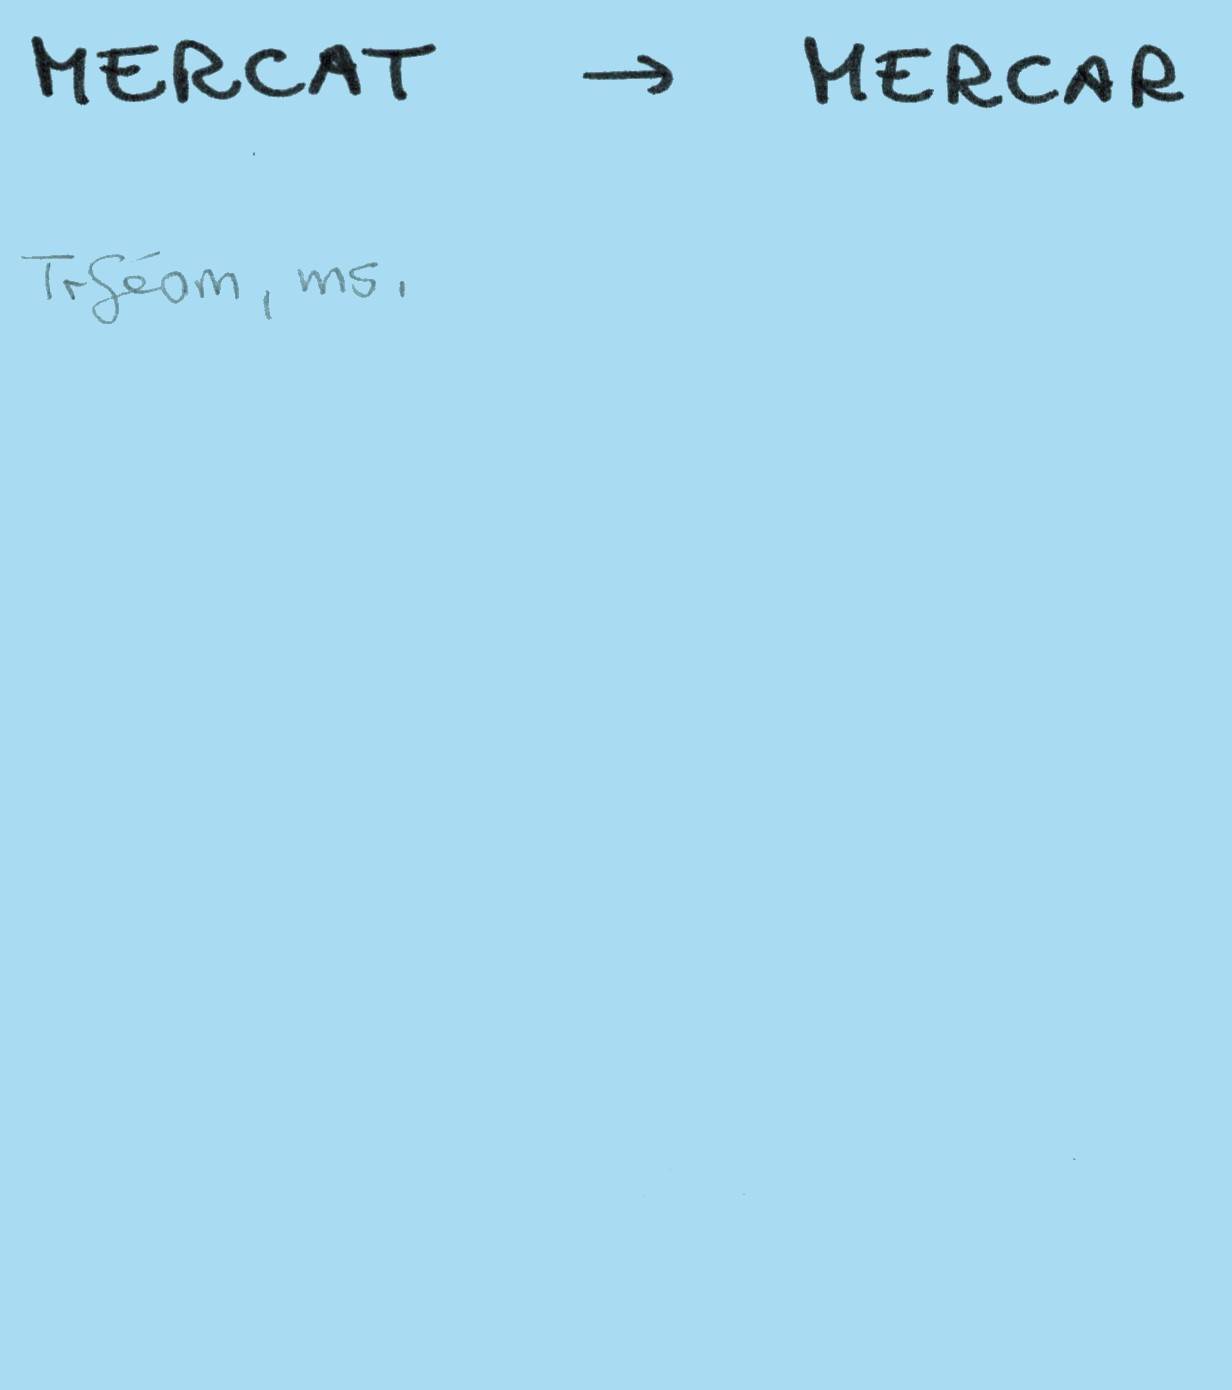 MERCAT → MERCAR
TrGéom, ms.